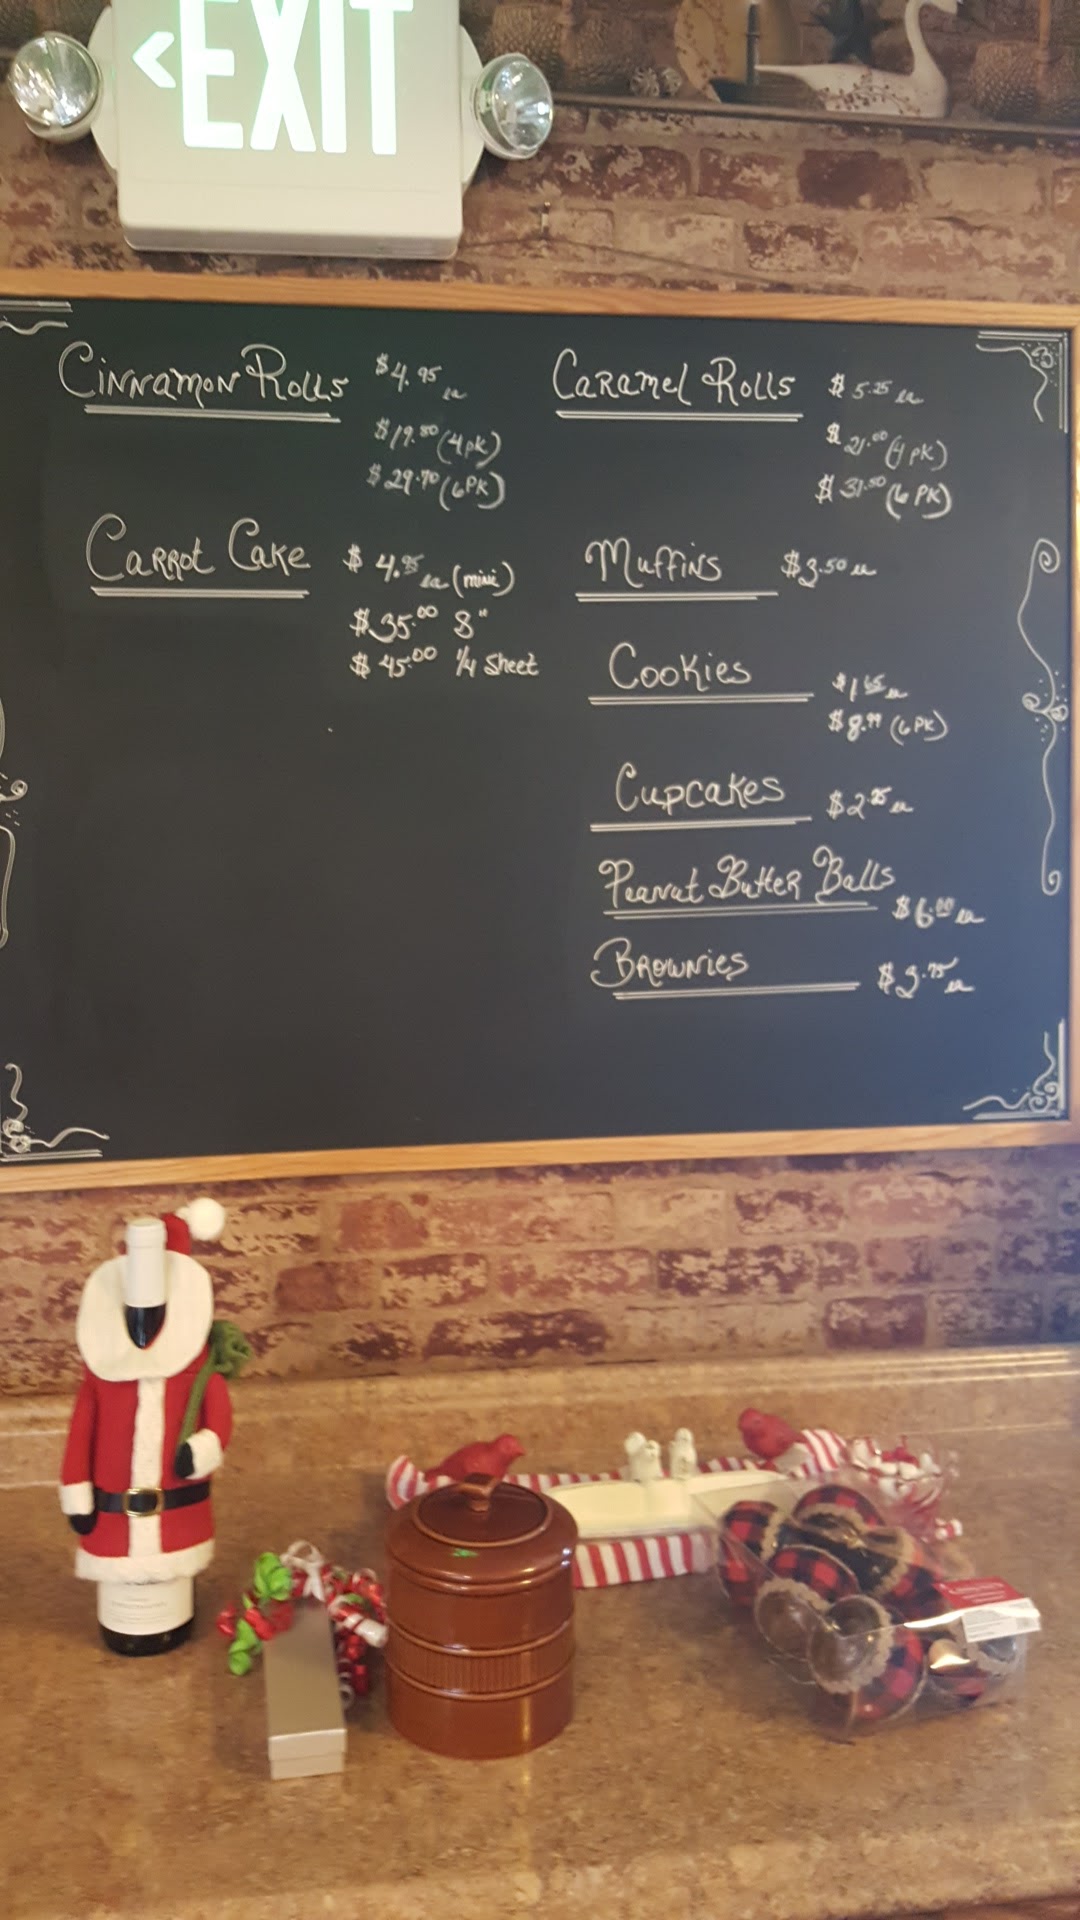 <EXIT
Cinnamon Rolls $4.95 ea
$19.80 (4pk)
$29.70 (6PK)
Carrot Cake $4.95 ea (mini)
$35.00 8"
$45.00 1/4 Sheet
Caramel Rolls $5.25 ea
$21.00 (4 PK)
$31.50 (6 PK)
Muffins $3.50 ea
Cookies $1.65 ea
$8.99 (6 PK)
Cupcakes $2.95 ea
Peanut Butter Balls
$6.00 ea
Brownies $3.75 ea